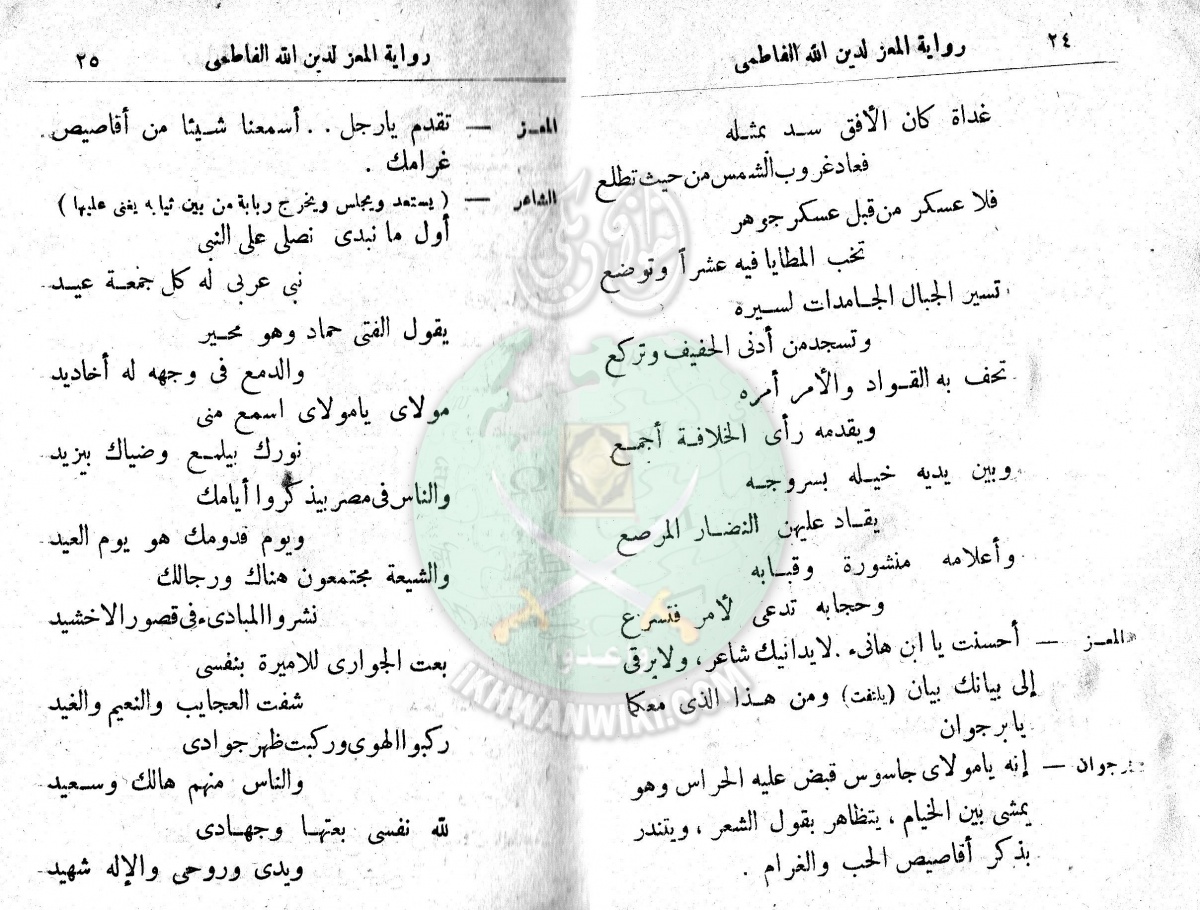 ٢٤
رواية المعز لدين الله الفاطمى
غداة كان الأفق سد بمثله
فعاد غروب الشمس من حيث تطلع
فلا عسكر من قبل عسكر جوهر
تخب المطايا فيه عشراً وتوضع
تسير الجبال الجامدات لسيره
وتسجد من أدنى الحفيف وتركع
تحف به القواد والأمر أمره
ويقدمه رأى الخلافة أجمع
وبين يديه خيله بسروجه
يقاد عليهن النضار المرصع
وأعلامه منشورة وقبابه
وحجابه تدعى لأمر فتسرع
المعز — أحسنت يا ابن هانىء . لا يدانيك شاعر ، ولا يرقى
إلى بيانك بيان (يلتفت) ومن هذا الذى معكما
يا برجوان
برجوان — إنه يامولاى جاسوس قبض عليه الحراس وهو
يمشى بين الخيام ، يتظاهر بقول الشعر ، ويتندر
بذكر أقاصيص الحب والغرام .
رواية المعز لدين الله الفاطمى
٢٥
المعز — تقدم يارجل . . أسمعنا شيئا من أقاصيص
غرامك .
الشاعر — ( يستعد ويجلس ويخرج ربابة من بين ثيابه يغنى عليها )
أول ما نبدى نصلى على النبى
نبى عربى له كل جمعة عيد
يقول الفتى حماد وهو محير
والدمع فى وجهه له أخاديد
مولاى يامولاى اسمع منى
نورك بيلمع وضياك بيزيد
والناس فى مصر بيذكروا أيامك
ويوم قدومك هو يوم العيد
والشيعة مجتمعون هناك ورجالك
نشروا المبادىء فى قصور الاخشيد
بعت الجوارى للاميرة بنفسى
شفت العجايب والنعيم والغيد
ركبوا الهوى وركبت ظهر جوادى
والناس منهم هالك وسعيد
لله نفسى بعتها وجهادى
ويدى وروحى والإله شهيد
وأعدوا
IKHWANWIKI.COM